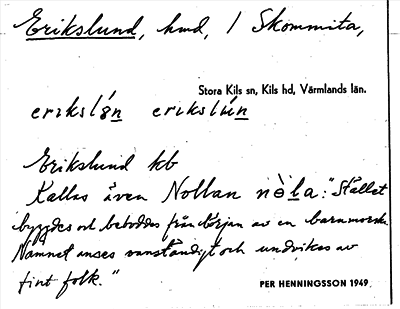 Erikslund, hmd, 1 Skommita,
Stora Kils sn, Kils hd, Värmlands län.
Erikslund kb
Kallas även Nollan nòla: "Stället
byggdes och beboddes från början av en barnmorska.
Namnet anses vanständigt och undvikes av
fint folk."
PER HENNINGSSON 1949